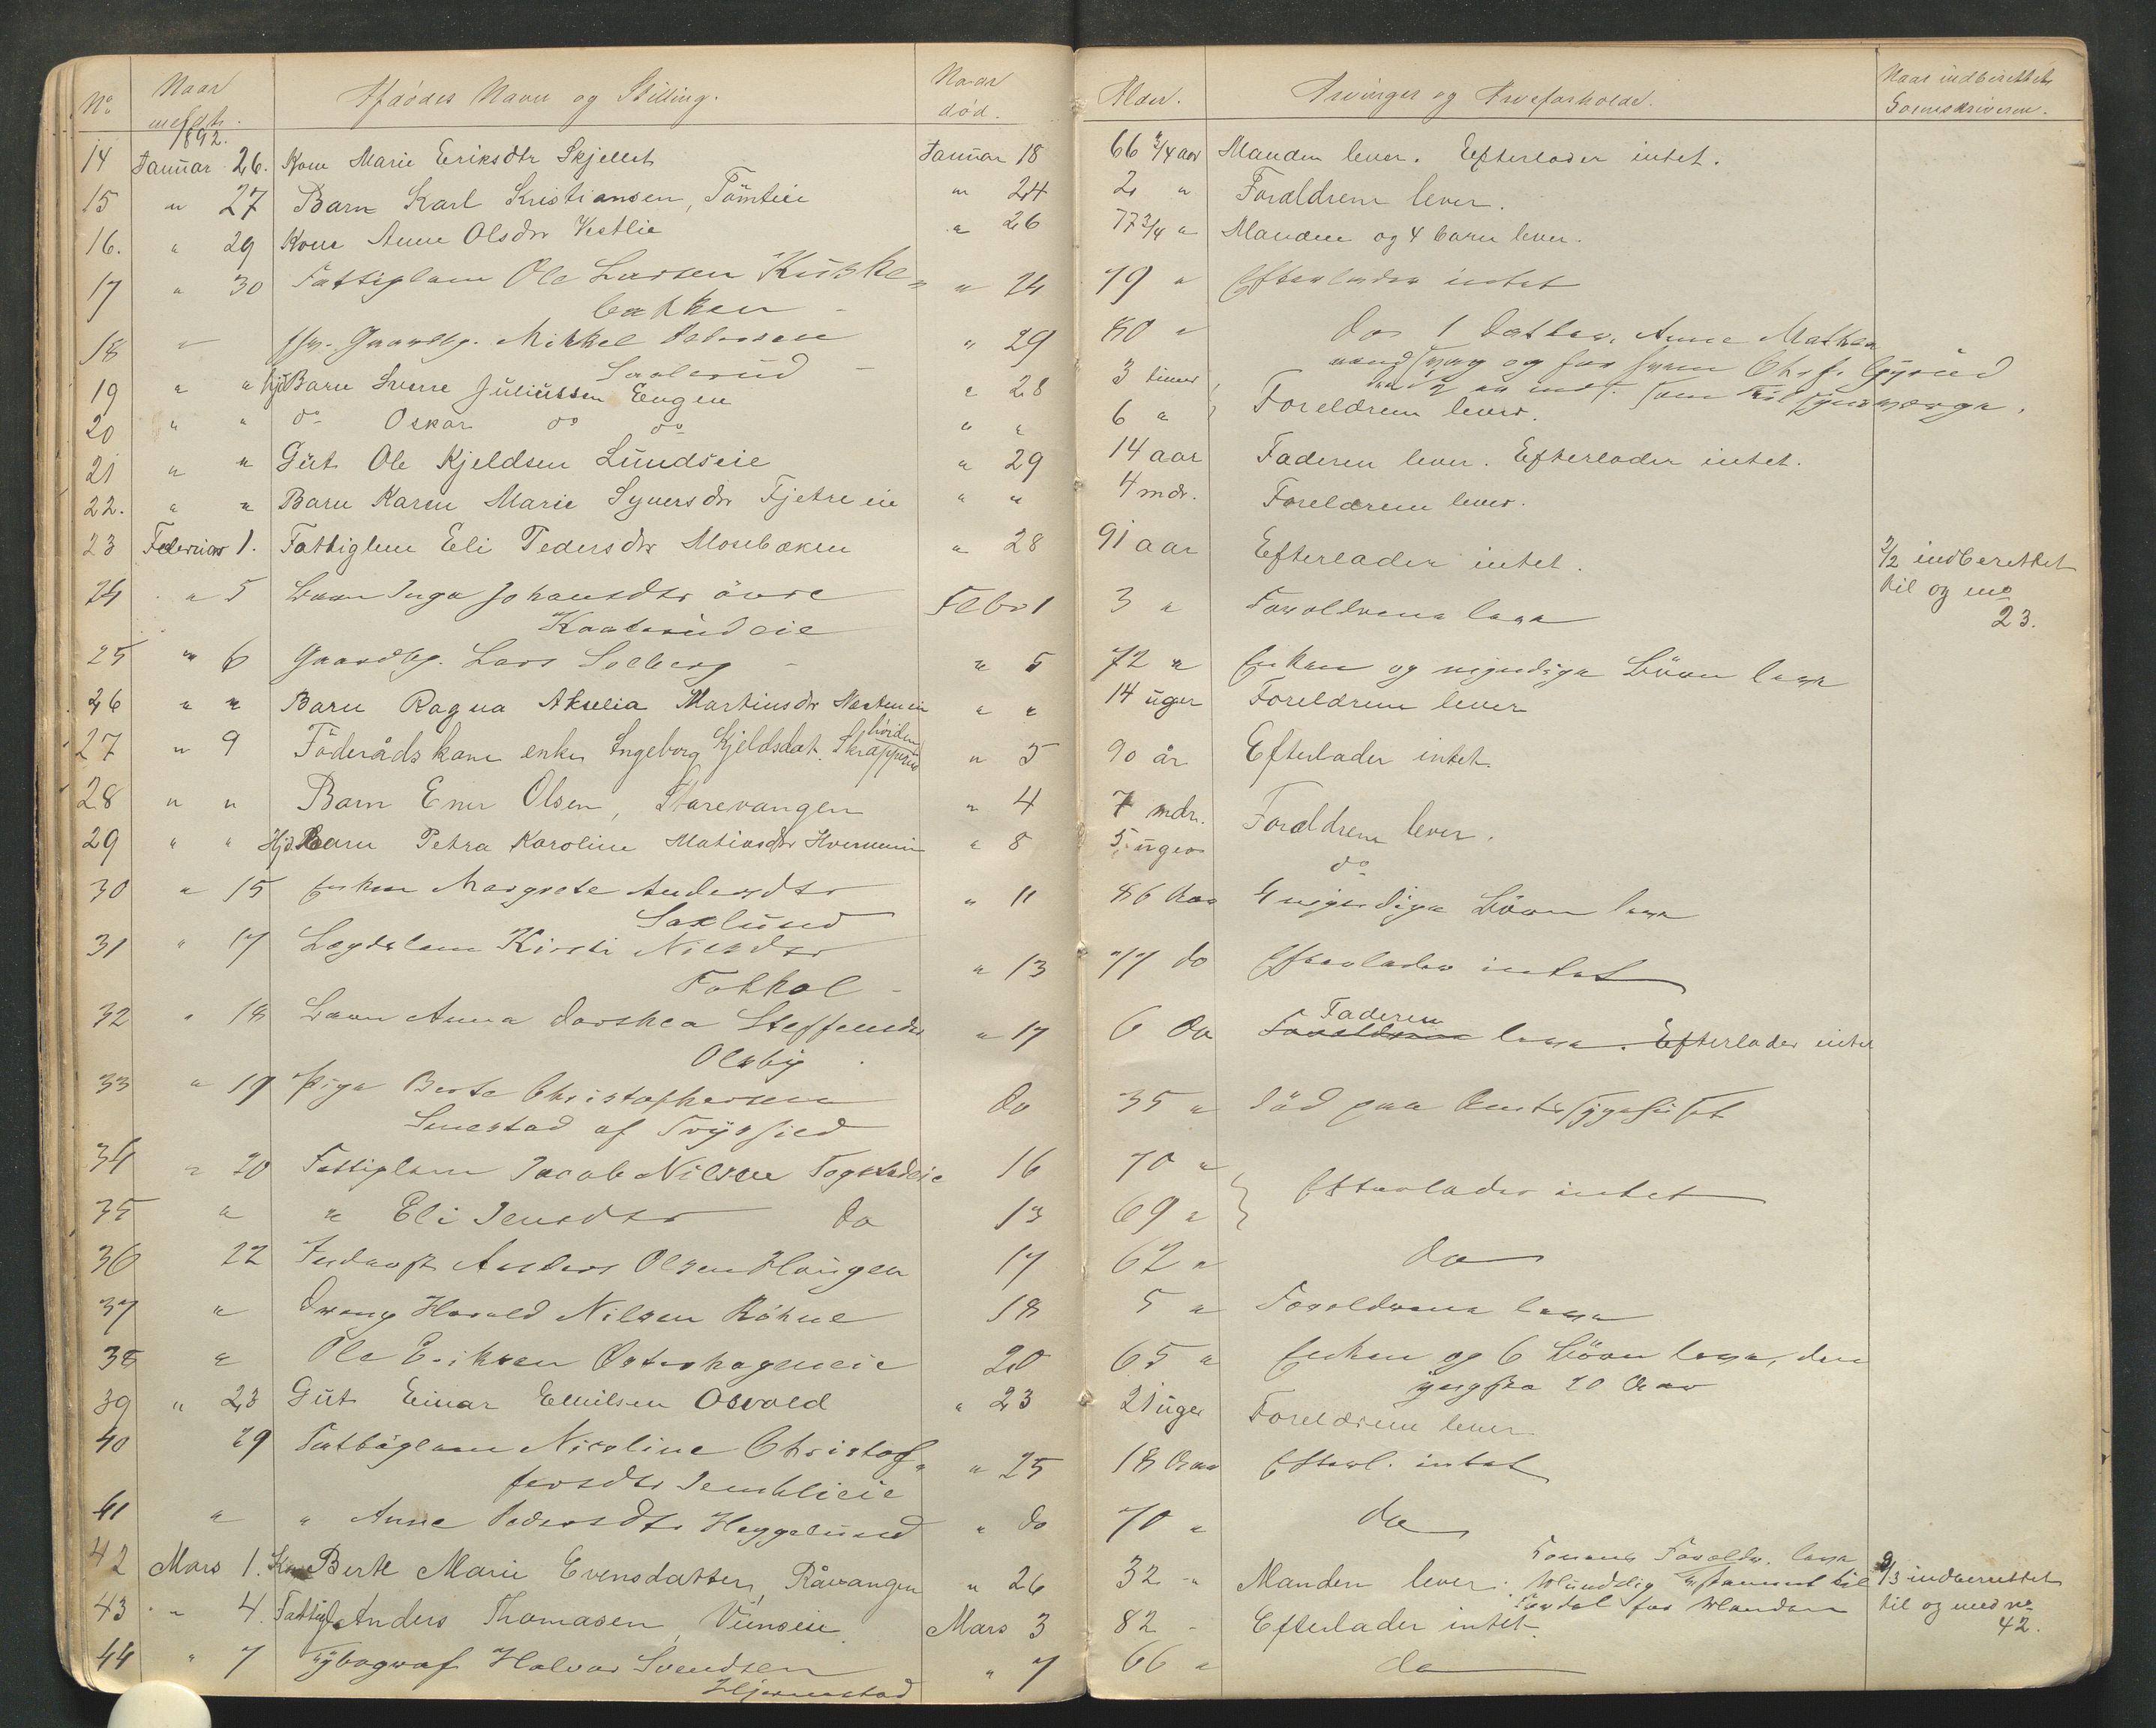 No Naar meldt. Afdødes Navn og Stilling. Naar død. Alder. Arvinger og Arveforholde. Naar indberettet Sorenskriveren.
1892.
14 Januar 26. Kone Marie Eriksdtr Skjellet Januar 18 66 3/4 aar Manden lever. Efterlader intet.
15 " 27 Barn Karl Kristiansen, Tömteie " 24 2 " Forældrene lever.
16. " 29 Kone Anne Olsdtr Vestlie " 26 77 3/4 " Manden og 4 barn lever.
17 " 30 Fattiglem Ole Larsen Kuske- " 24 79 " Efterlader intet
bakken
18 " Gaardbr. Mikkel Pedersen " 29 80 " 1 Datter, Anne Mathea
Saxlerud og for Chr. Gjörud
19 " " Hjd Barn Sverre Juliussen Engen " 28 3 timer
20 " " do Oskar do do " " 6 " Foreldrene lever.
21 " " Gut Ole Kjeldsen Lundseie " 29 14 aar Faderen lever. Efterlader intet.
22. " " Barn Karen Marie Syversdtr Fjetre eie " " 4 mdr. Foreldrene lever.
23 Februar 1. Fattiglem Eli Pedersdtr Mosebakken " 28 91 aar Efterlader intet. 2/2 indberettet
til og med
23.
24 " 5 Barn Inga Johansdtr övre Febr 1 3 " Forældrene leve
Kaaterud eie
25 " 6 Gaardbr. Lars Solberg " 5 72 " Enken og myndige Börn leve
26 " " Barn Ragna Akselia Martinsdtr " " 14 uger Foreldrene lever
27 " 9 Föderådskone enke Ingeborg Kjeldsdat. " 5 90 år Efterlader intet.
28 " " Barn Ener Olsen, Starevangen " 4 7 mdr. Forældrene lever.
29 " " Hjd. Barn Petra Karoline Matiasdtr " 8 5 uger do
30 " 15 Enken Margrete Andersdtr " 11 86 Aar 4 myndige Börn leve
Saxlund
31 " 17 Lægdslem Kirsti Nilsdtr " 13 77 do Efterlader intet
Fokhol
32 " 18 Barn Anna Dorthea Steffensdtr " 17 6 do Faderen Forældrene leve. Efterlader intet
Olsby
33 " 19 Pige Berte Christophersen do 35 " Död paa Amtssygehuset
Smestad af Trysild
34 " 20 Fattiglem Jacob Nilsen Togstadeie 16 70 " Efterlader intet
35 " " Eli Jensdtr do 13 69 "
36 22 Inderst Anders Olsen Haugen 17 62 " do
37 " Dreng Harald Nilsen Röhne 18 5 " Forældrene leve
38 " Ole Eriksen Österhageneie 20 65 " Enken og 6 Börn leve, den
yngste 20 Aar
39 " 23 Gut Einar Emilsen Osvold " 23 21 uger Foreldrene lever
40 29 Fattiglem Nicoline Christof- " 25 18 Aar Efterl. intet
fersdtr Jemblieie
41 " " Anne Pedersdtr Heggelund " do 70 " do
42 Mars 1. Kone Berte Marie Evensdatter, Råvangen " 26 32 " Manden lever. Konens Forældr. leve 9/3 indberettet
Mundtlig Testament til
Fordel for Manden til og med no 42.
43 " 4. Fattigl. Anders Thomasen, Viinseie Mars 3 82 - Efterlader intet.
44 " 7 Typograf Halvor Svendsen " 7 66 " do
Hjemstad